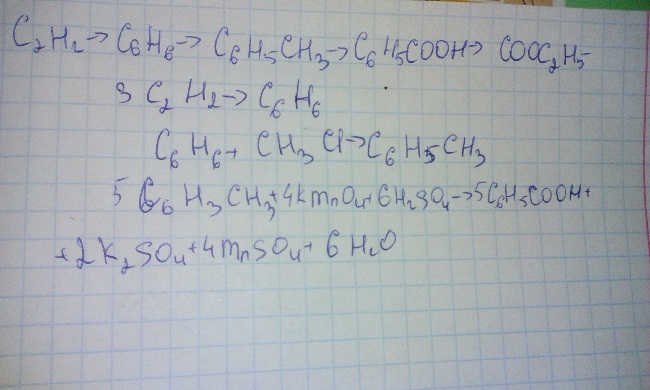 C₂H₂→ C₆H₆→ C₆H₅CH₃→C₆H₅COOH→ COOC₂H₅-
3 C₂H₂→ C₆H₆
C₆H₆+ CH₃Cl→C₆H₅CH₃
5 C₆H₃CH₃+4KMnO₄+6H₂SO₄→5C₆H₅COOH+
+2K₂SO₄+4MnSO₄+ 6H₂O